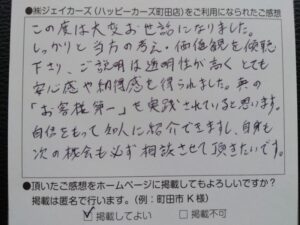 ●㈱ジェイカーズ（ハッピーカーズ町田店）をご利用になられたご感想
この度は大変お世話になりました。
しっかりと当方の考え・価値観を傾聴
下さり、ご説明は透明性が高くとても
安心感や納得感も得られました。真の
「お客様第一」を実践されていると思います。
自信をもって知人に紹介できますし、自身も
次の機会も必ず相談させて頂きたいです。
●頂いたご感想をホームページに掲載してもよろしいですか？
掲載は匿名で行います。（例：町田市 K 様）
☑ 掲載してよい　□ 掲載不可